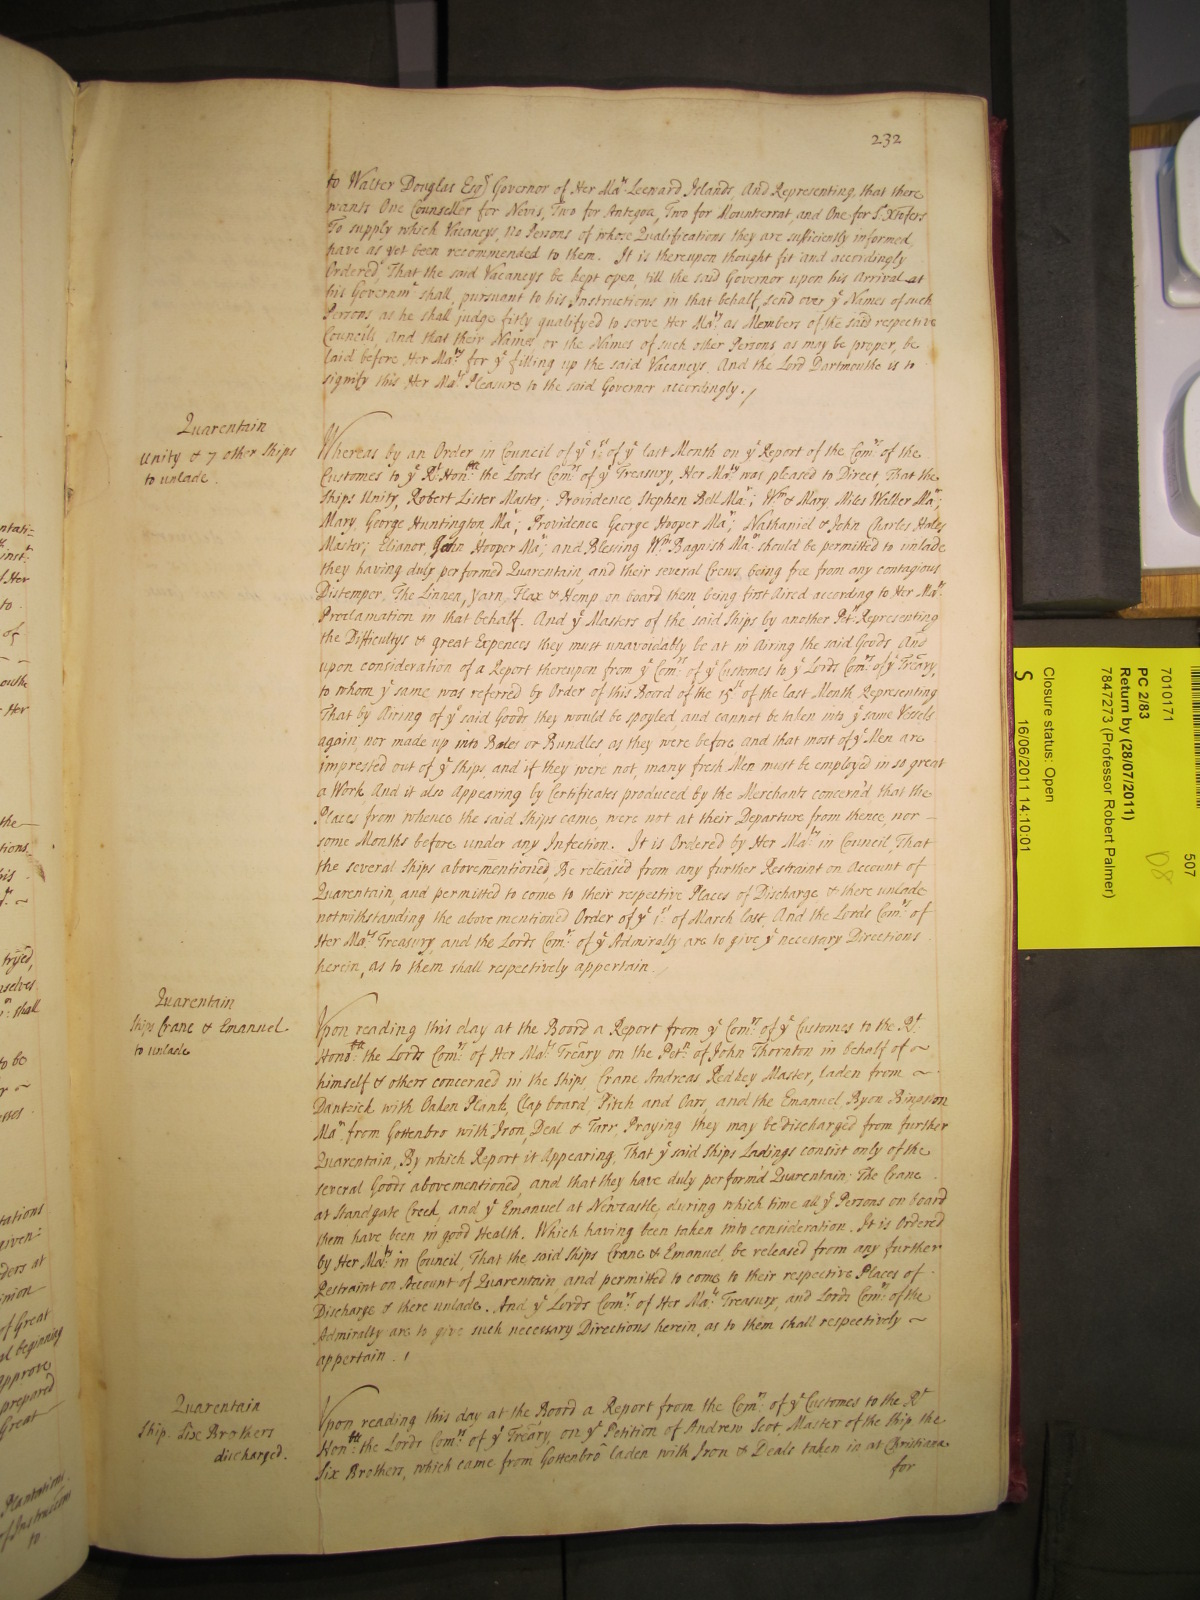 232
to Walter Douglas Esqr. Governor of Her Mats. Leeward Islands, And Representing, that there
wants One Counseller for Nevis, Two for Antegoa, Two for Mountserrat, and One for St. Xtofers
To supply which Vacancys, No Persons of whose Qualifications they are sufficiently informed,
have as yet been recommended to them. It is thereupon thought fit and accordingly
Ordered That the said Vacancys be kept open, till the said Governor upon his Arrival at
his Governmt. shall, pursuant to his Instructions in that behalf, send over ye Names of such
Persons as he shall judge fitly qualifyed to serve Her Maty. as Members of the said respective
Councils, And that their Names, or the Names of such other Persons as may be proper, be
laid before Her Maty. for ye filling up the said Vacancys, And the Lord Dartmouthe is to
signify this Her Mats. Pleasure to the said Governor accordingly.
Quarentain
Unity & 7 other Ships
to unlade
Whereas by an Order in Council of ye 1st of ye last Month on ye Report of the Comrs. of the
Customes to ye Rt. Honble. the Lords Comrs. of ye Treasury, Her Maty was pleased to Direct, That the
Ships Unity, Robert Lister Master; Providence Stephen Bell Mar.; Wm. & Mary, Miles Walker Mar.;
Mary, George Huntington Mar.; Providence George Hooper Mar.; Nathaniel & John Charles Hales
Master; Elianor, John Hooper Mar.; and Blessing Wm. Bagnish Mar. should be permitted to unlade
they having duly performed Quarentain, and their several Crews, being free from any contagious
Distemper, The Linnen, Yarn, Flax & Hemp, on board them, being first Aired according to Her Mats.
Proclamation in that behalf. And ye Masters of the said Ships by another Petn. Representing
the Difficultys & great Expences they must unavoidably be at in Airing the said Goods, And
upon consideration of a Report thereupon from ye Comrs. of ye Customes to ye Lords Comrs. of ye Treãry,
to whom ye same was referred by Order of this Board of the 15th of the last Month Representing
That by Airing of ye said Goods they would be spoyled and cannot be taken into ye same Vessels
again, nor made up into Bales or Bundles as they were before and that most of ye Men are
impressed out of ye Ships, and if they were not, many fresh Men must be employed in so great
a Work And it also Appearing by Certificates produced by the Merchants concern'd that the
Places from whence the said Ships came, were not at their Departure from thence, nor
some Months before under any Infection. It is Ordered by Her Maty. in Council, That
the several Ships abovementioned, Be released from any further Restraint on Account of
Quarentain, and permitted to come to their respective Places of Discharge & there unlade
notwithstanding the above mentioned Order of ye 1st. of March last, And the Lords Comrs. of
Her Mats. Treasury, and the Lords Comrs. of ye Admiralty are to give ye necessary Directions
herein, as to them shall respectively appertain.
Quarentain
Ships Crane & Emanuel
to unlade
Upon reading this day at the Board a Report from ye Comrs. of ye Customes to the Rt.
Honoble. the Lords Comrs. of Her Mats. Treãry on the Petn. of John Thornton in behalf of ~
himself & others concerned in the Ships, Crane Andreas Redkey Master, laden from ~
Dantzick with Oaken Plank, Clapboard, Pitch and Oars, and the Emanuel
Mar. from Gottenbro with Iron, Deal & Tarr, Praying they may be discharged from further
Quarentain, By which Report it Appearing, That ye said Ships Ladings consist only of the
several Goods abovementioned, and that they have duly perform'd Quarentain; The Crane
at Standgate Creek, and ye Emanuel at Newcastle, during which time all ye Persons on board
them have been in good Health. Which having been taken into consideration. It is Ordered
by Her Maty. in Council, That the said Ships Crane & Emanuel, be released from any further
Restraint on Account of Quarentain, and permitted to come to their respective Places of
Discharge & there unlade. And ye Lords Comrs. of Her Mats. Treasury, and Lords Comrs. of the
Admiralty are to give such necessary Directions herein, as to them shall respectively ~
appertain.
Quarentain
Ship. Six Brothers
discharged.
Upon reading this day at the Board a Report from the Comrs. of ye Customes to the Rt
Honble. the Lords Comrs. of ye Treãry, on ye Petition of Andrew Scot, Master of the Ship, the
Six Brothers, which came from Gottenbro laden with Iron & Deals taken in at Christiana
for
507
7010171
PC 2/83
Return by (28/07/2011)
7847273 (Professor Robert Palmer)
Closure status: Open
S 16/06/2011 14:10:01
D8